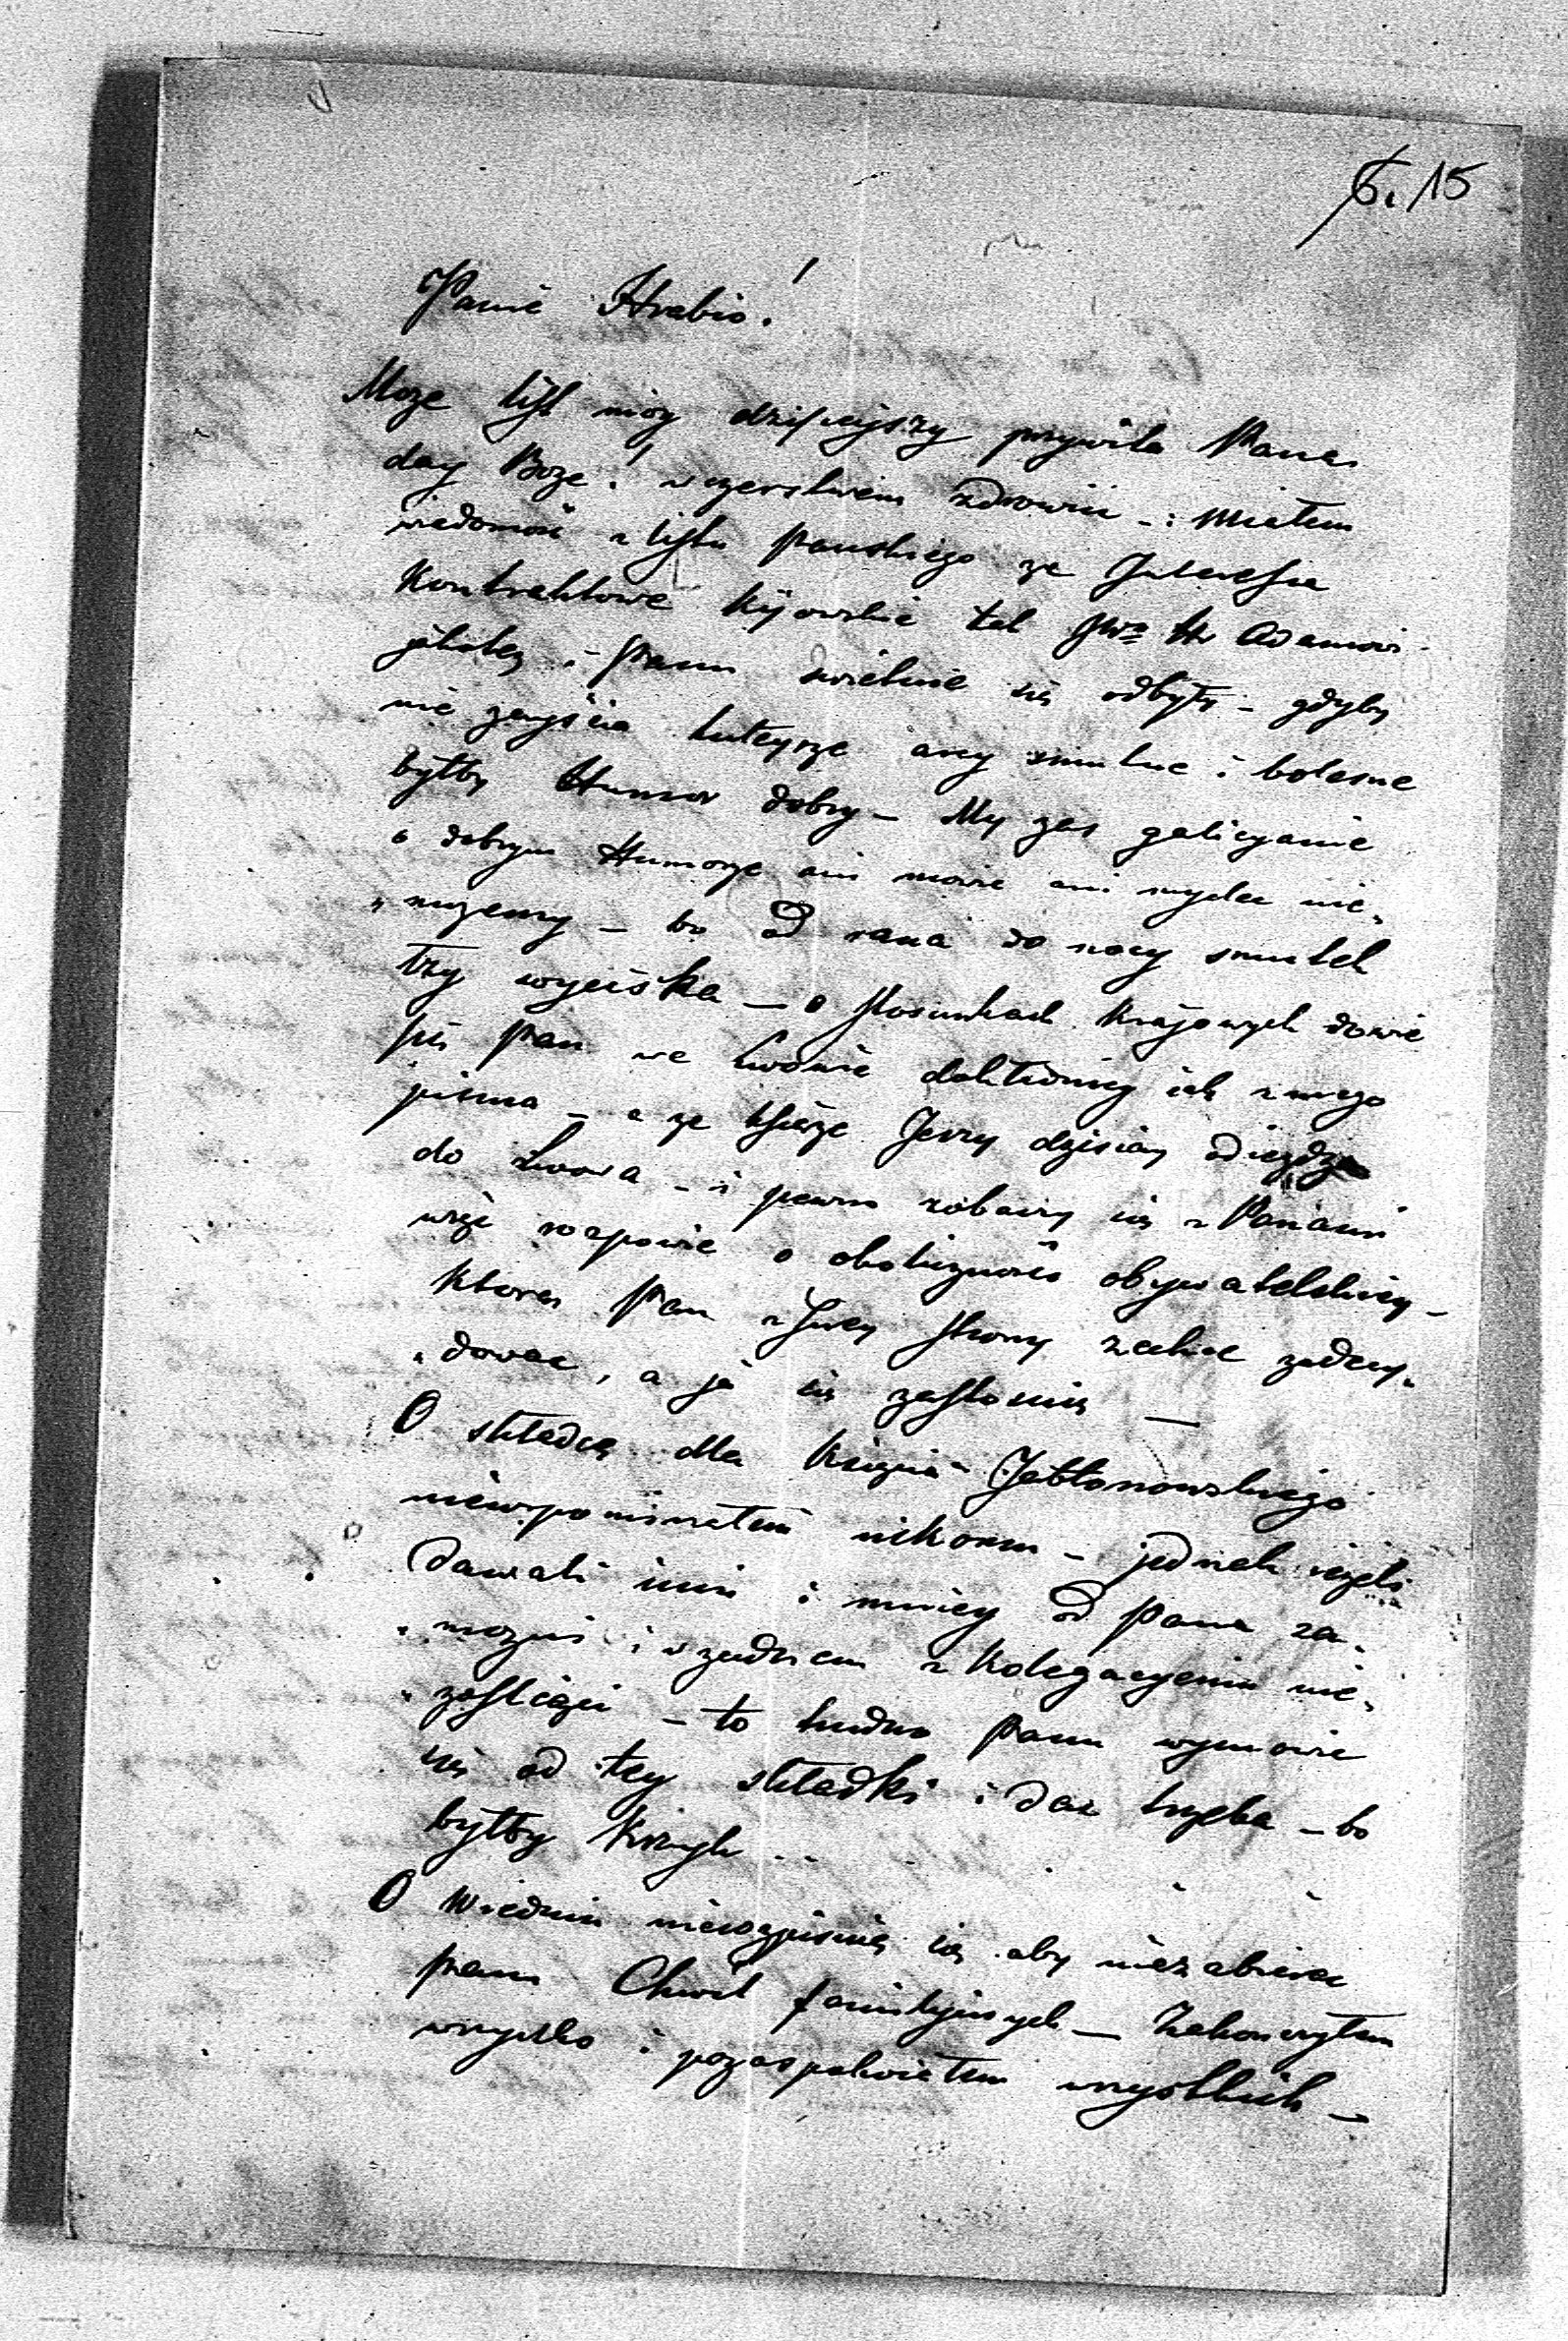 6. 15
Panie Hrabio!
Moze list móy dzisieyszy przywita Pana
day Boze! w czerstwem zdrowiu - : Miałem
wiadomość z listu Panskiego ze Interesa
Kontraktowe Kijowskie tak JWo Hr Adamowi
jakotez i Panu swietnie się odbyły - gdyby
nie zayścia tuteysze arcy smutne i bolesne
byłby Humor dobry - My zas galicyanie
o dobrym Humorze ani mowić ani myslec nie„
„mozemy - bo od rana do nocy smutek
łzy wyciska - o stosunkach Krajowych dowie
się Pan we Lwowie dokładniey jak z mego
pisma - a ze Xsiąze Jerzy dzisiay odiezdza
do Lwowa - i pewno zobaczy się z Panami
więc rozpowie o okoliczności obywatelskiey -
ktorą Pan z Swey strony zechce zadecy„
„dowac, a ja się zastosuię —
O składce dla Xięcia Jabłonowskiego
niewspominałem nikomu - jednak iezeli
dawali inni i mniey od Pana za„
„mozni i w zadnem z Kolegacyami nie„
„zostaiący - to trudno Panu wymowic
się od tey składki i dac trzeba - bo
byłby Krzyk ..
O Wiedniu nierozpisuię się aby niezabierac
Panu Chwil familyinych — Zakonczyłem
wszystko i pozaspokoiełem wszystkich -